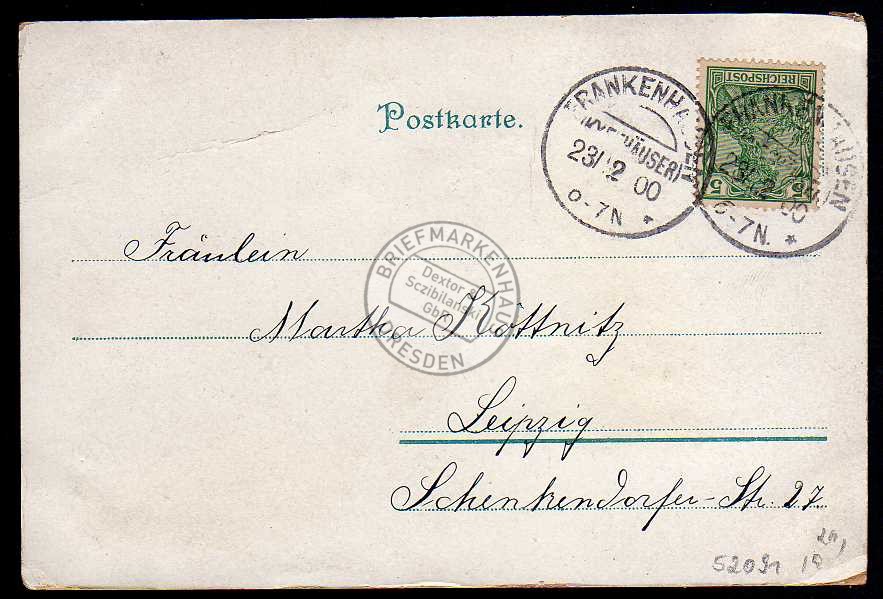 REICHSPOST
5 5
Postkarte.
FRANKENHAUSEN
(KYFFHÄUSER)
23/12 00
6-7N. *
FRANKENHAUSEN
23/12 00
6-7N. *
Fräulein
Martha Köttnitz
Leipzig
Schenkendorfer-Str. 27.
BRIEFMARKENHAUS
Dextor &
Sczibilanski
GbR
DRESDEN